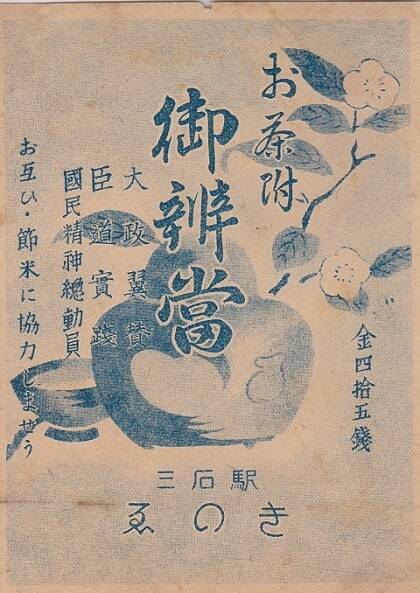 お茶附
御辨當
大政翼賛
臣道實踐
國民精神總動員
お互ひ・節米に協力しませう
金四拾五錢
三石駅
ゑのき